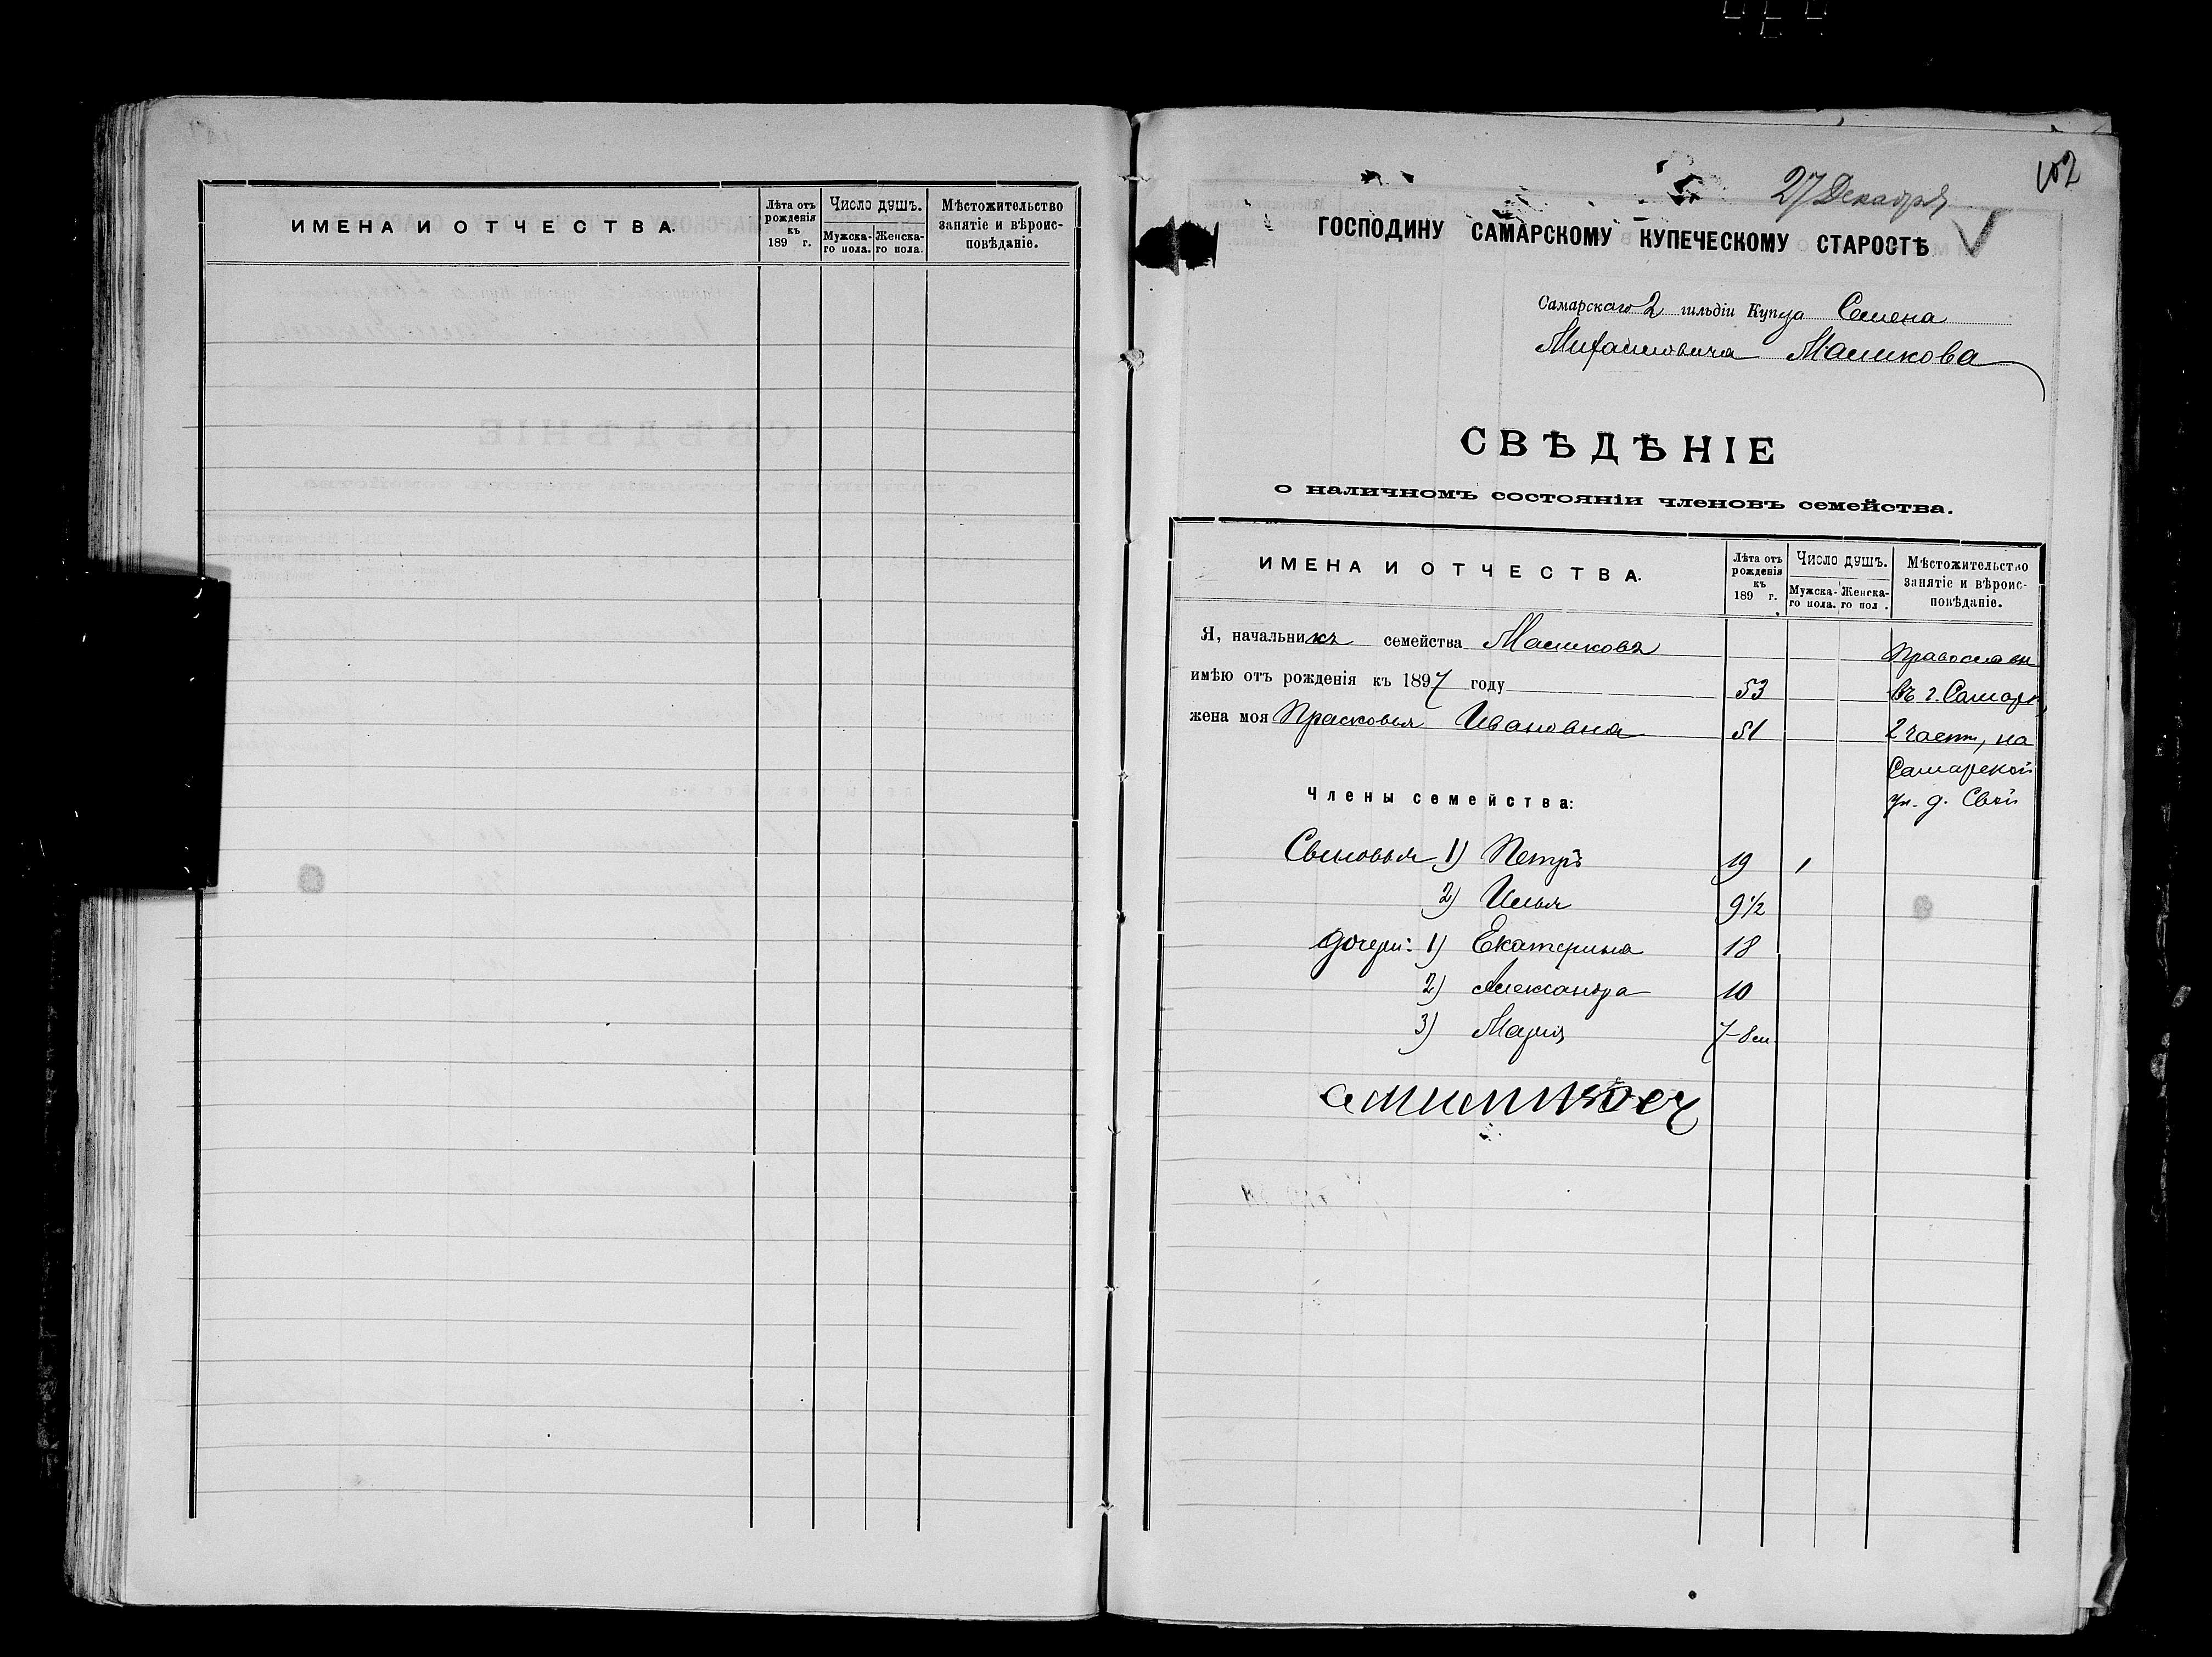 ИМЕНА И ОТЧЕСТВА.
Лѣта отъ рожденія къ 189 г.
Число душъ.
Мужска-го пола.
Женска-го пола.
Мѣстожительство занятіе и вѣроис-повѣданіе.
102
27 Декабря
ГОСПОДИНУ САМАРСКОМУ КУПЕЧЕСКОМУ СТАРОСТѢ
Самарскаго 2 гильдіи Купца Семена
Михайловича Машкова
СВѢДѢНІЕ
о наличномъ состояніи членовъ семейства.
ИМЕНА И ОТЧЕСТВА.
Лѣта отъ рожденія къ 189 г.
Число душъ.
Мужска-го пола.
Женска-го пол .
Мѣстожительство занятіе и вѣроис-повѣданіе.
Я, начальникъ семейства Машковъ
Православн
имѣю отъ рожденія къ 1897 году 53
въ г. Самарѣ,
жена моя Прасковья Ивановна 51
2 части, на
Самарской
ул. д. Свой
Члены семейства:
Сыновья 1) Петръ 19 1
2) Илья 9 1/2
дочери: 1) Екатерина 18
2) Александра 10
3) Марія 7-8 м